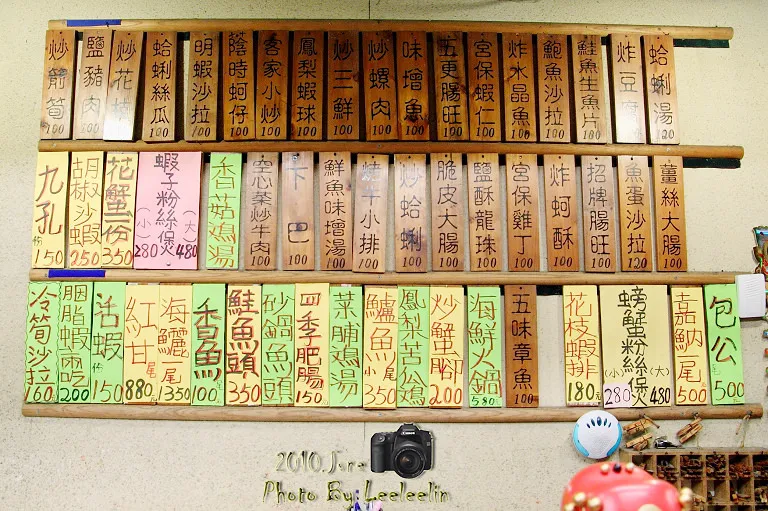 炒箭筍 100
鹽豬肉 100
炒花枝 100
蛤蜊絲瓜 100
明蝦沙拉 100
蔭時蚵仔 100
客家小炒 100
鳳梨蝦球 100
炒三鮮 100
炒螺肉 100
味噌魚 100
五更腸旺 100
宮保蝦仁 100
炸水晶魚 100
鮑魚沙拉 100
鮭魚生魚片 100
炸豆腐 100
蛤蜊湯 100
九孔 150
胡椒沙蝦 250
花蟹份 350
蝦子粉絲煲 (小)280 (大)480
香菇鷄湯
空心菜炒牛肉 100
下巴 100
鮮魚味噌湯 100
燒牛小排 100
炒蛤蜊 100
脆皮大腸 100
鹽酥龍珠 100
宮保雞丁 100
炸蚵酥 100
招牌腸旺 100
魚蛋沙拉 120
薑絲大腸 100
冷筍沙拉 160
胭脂蝦 200
活蝦 150
紅甘 尾 880
海鱺尾 350
香魚 100
鮭魚頭 350
砂鍋魚頭
四季肥腸 150
菜脯鷄湯
鱸魚 小尾 350
鳳梨苦瓜鷄
炒蟹腳 200
海鮮火鍋 580
五味章魚 100
花枝蝦排 180元
螃蟹粉絲煲 (小)280 (大)480
嘉納尾 500
包公 500
2010.Jun
Photo By Leeleelin